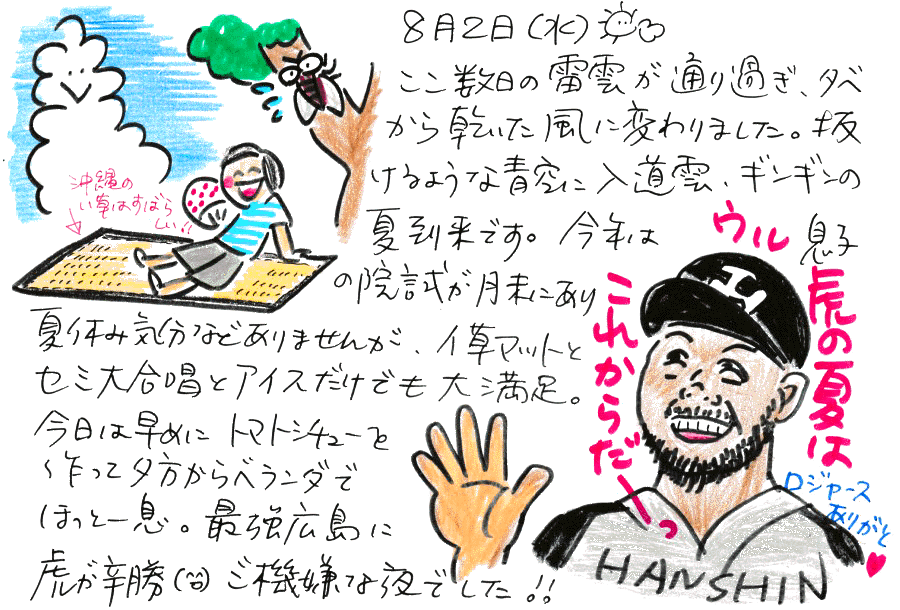 8月2日(水)
ここ数日の雷雲が通り過ぎ、夕べ
から乾いた風に変わりました。抜
けるような青空に入道雲、ギンギンの
夏到来です。今年は
息子
の院試が月末にあり
夏休み気分などありませんが、イ草マットと
セミ大合唱とアイスだけでも大満足。
今日は早めにトマトシチューを
作って夕方からベランダで
ほっと一息。最強広島に
虎が辛勝 ご機嫌な夜でした!!
沖縄の
い草はすばら
しい!!
ウル
虎の夏は
これからだーっ
ロジャース
ありがと
HANSHIN